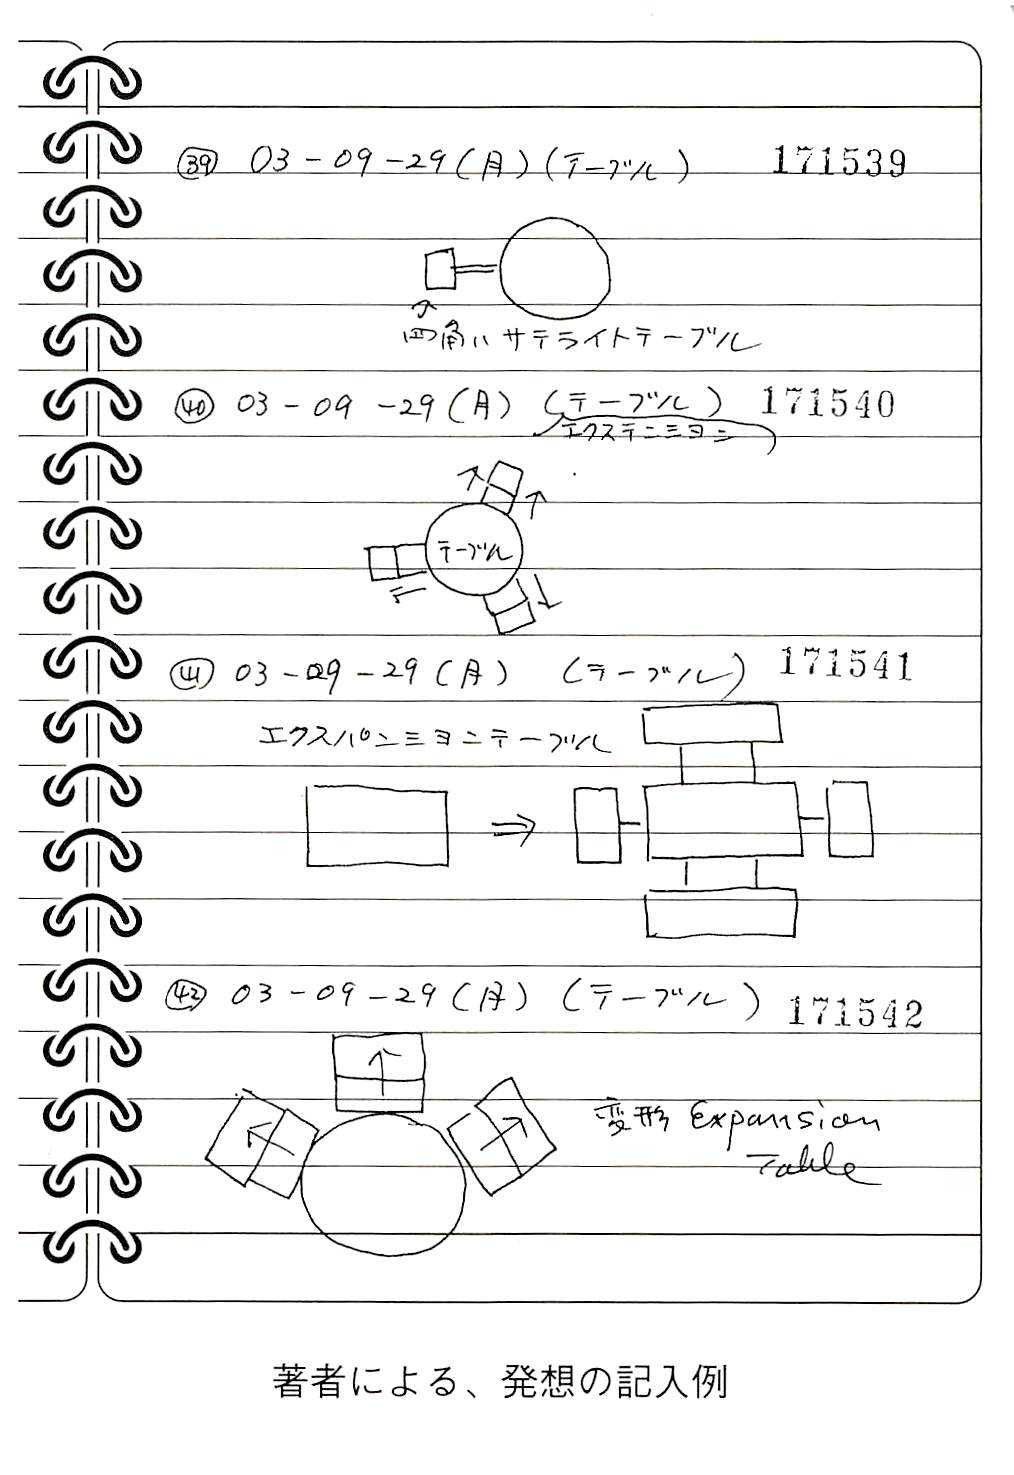 ㊴ 03-09-29(月)(テーブル) 171539
四角いサテライトテーブル
㊵ 03-09-29(月) (テーブル) 171540
エクステンション
テーブル
㊶ 03-09-29(月) (テーブル) 171541
エクスパンションテーブル
㊷ 03-09-29(月) (テーブル) 171542
変形 Expansion
Table
著者による、発想の記入例